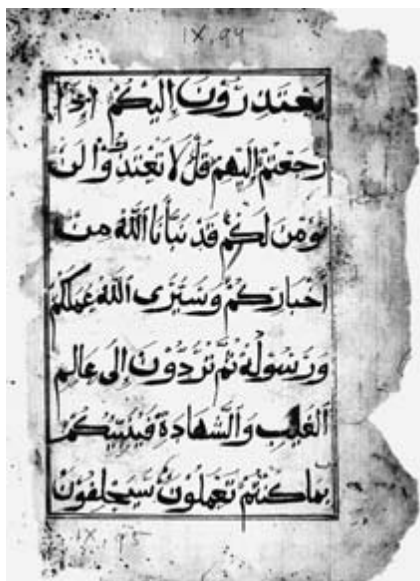 IX, 94
يَعْتَذِرُونَ إِلَيْكُمْ إِذَا
رَجَعْتُمْ إِلَيْهِمْ قُلْ لَا تَعْتَذِرُوا لَنْ
نُؤْمِنَ لَكُمْ قَدْ نَبَّأَنَا اللَّهُ مِنْ
أَخْبَارِكُمْ وَسَيَرَى اللَّهُ عَمَلَكُمْ
وَرَسُولُهُ ثُمَّ تُرَدُّونَ إِلَى عَالِمِ
الْغَيْبِ وَالشَّهَادَةِ فَيُنَبِّئُكُمْ
بِمَا كُنْتُمْ تَعْمَلُونَ سَيَحْلِفُونَ
IX, 95